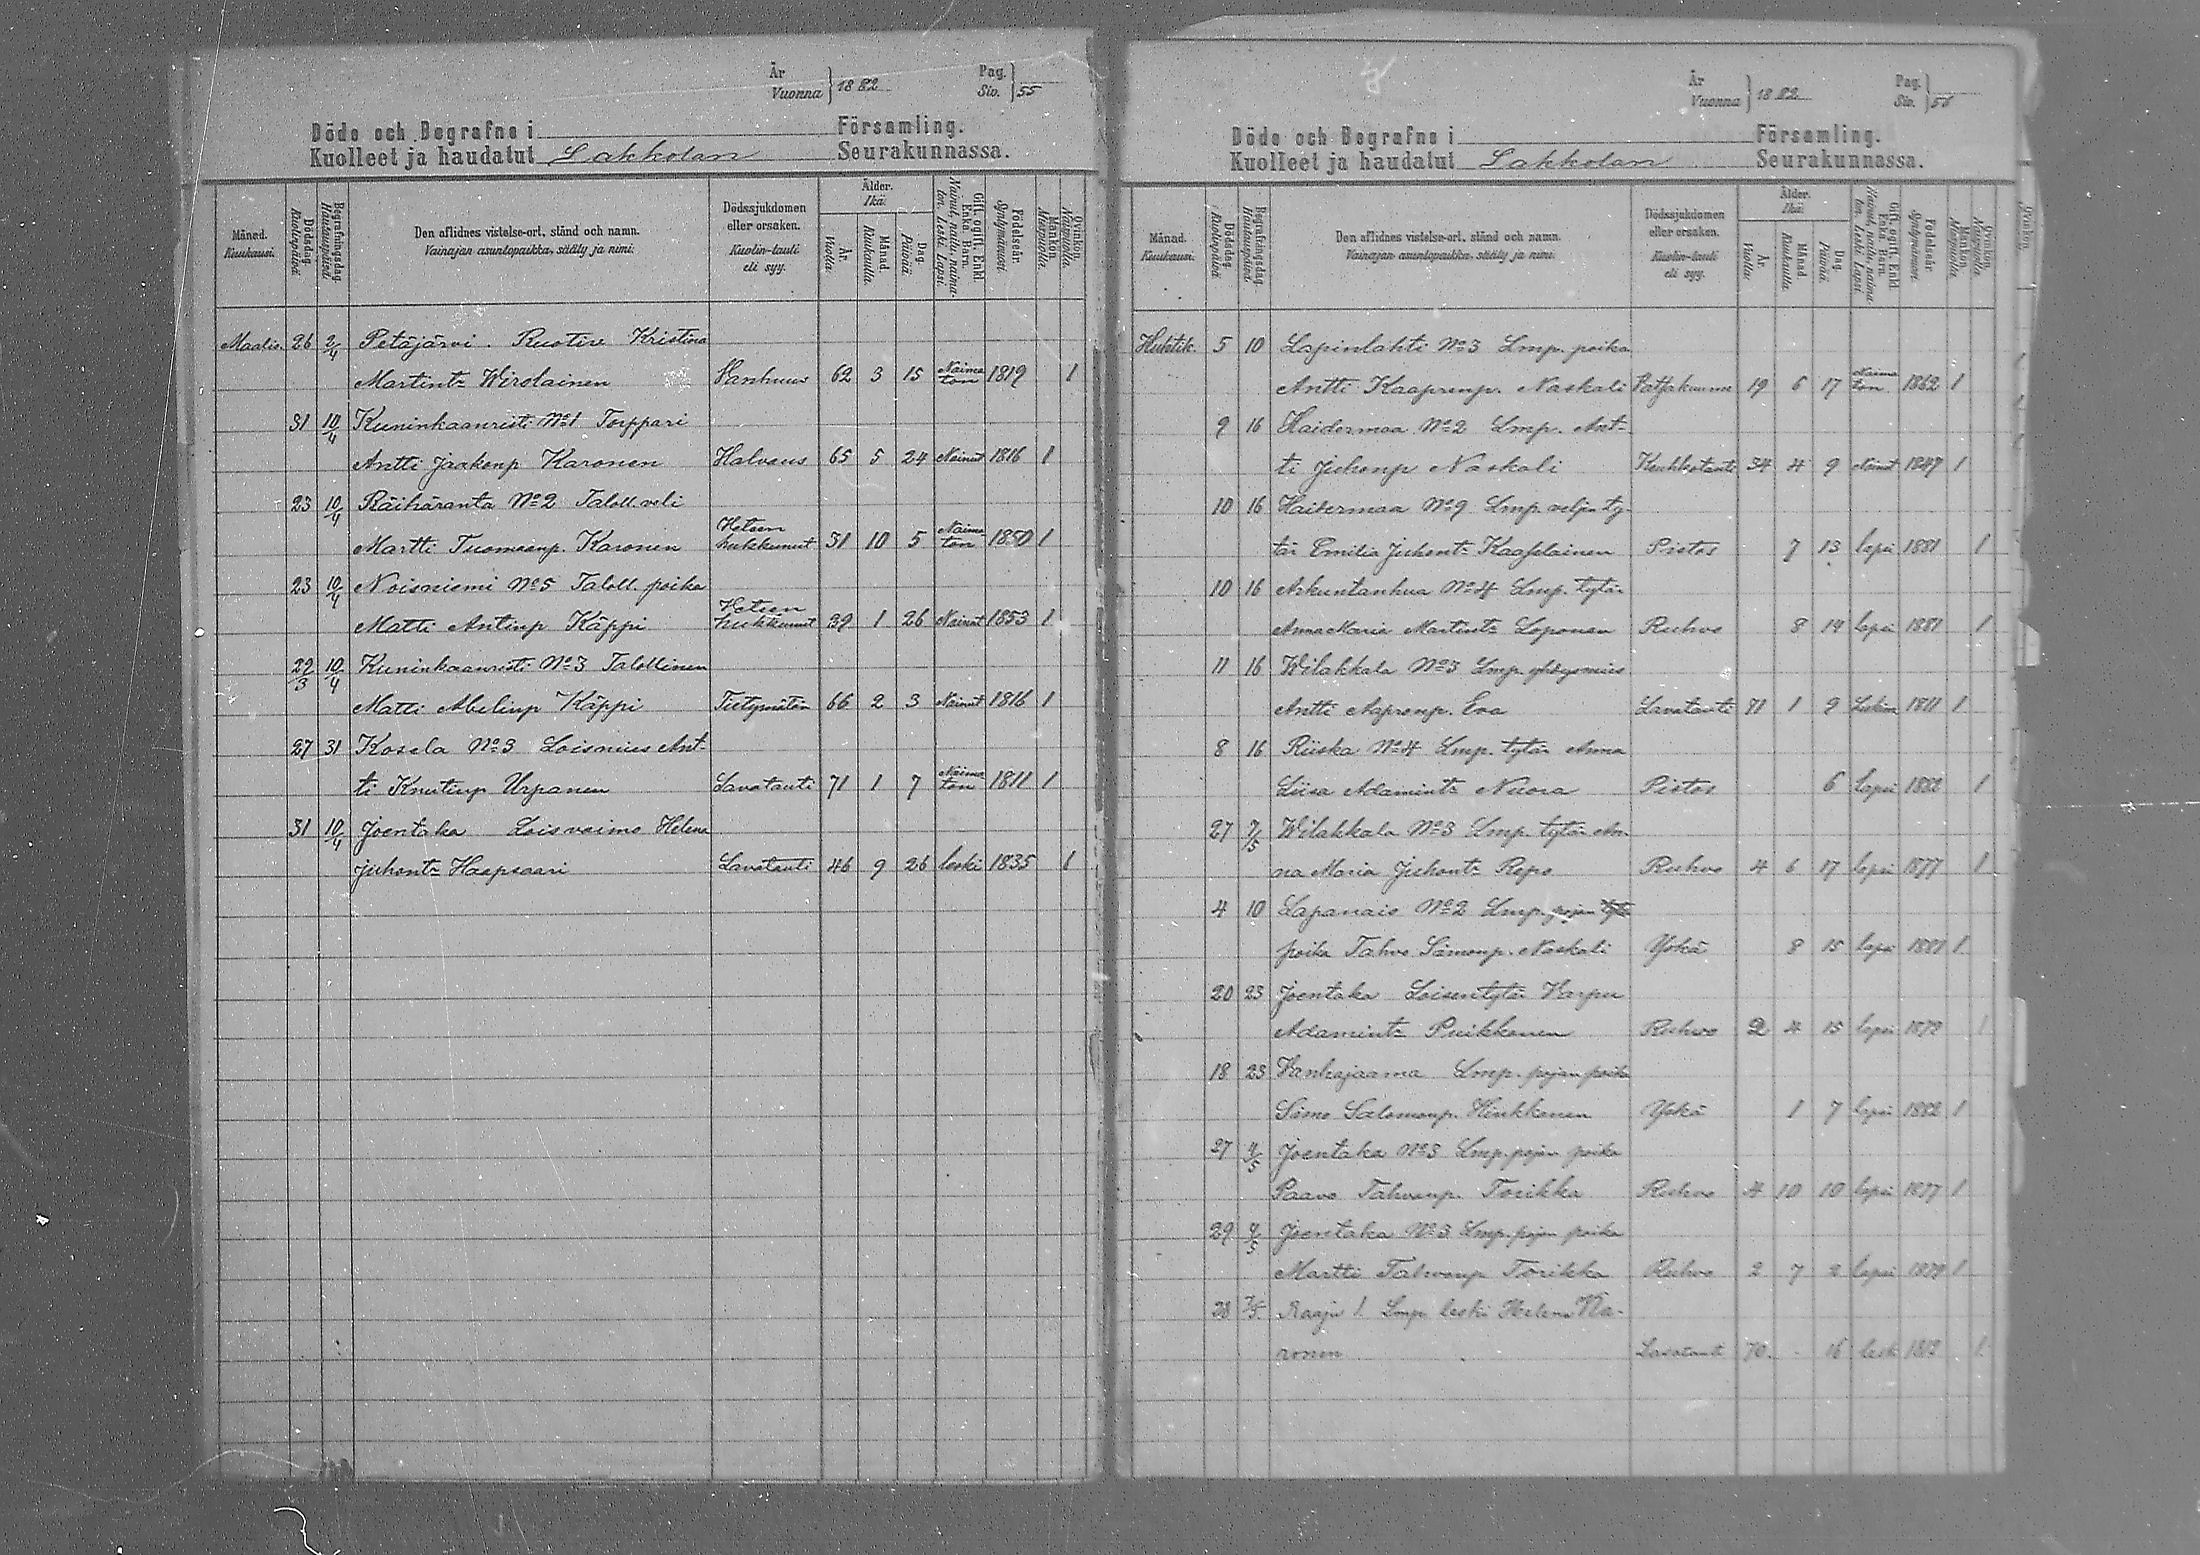 År Vuonna } 1882 Pag. Siv. } 55
Döde och Begrafne i Församling.
Kuolleet ja haudatut Sakkolan Seurakunnassa.
Månad. Kuukausi. Dödsdag. Kuolinpäivä. Begrafningsdag. Hautauspäivä. Den aflidnes vistelse-ort, stånd och namn. Vainajan asuntopaikka, sääty ja nimi. Dödssjukdomen eller orsaken. Kuolin-tauti eli syy. Ålder. Ikä. År. Vuotta. Månad. Kuukautta. Dag. Päivää. Gift, ogift, Enkl. Enka, Barn. Nainut, naitu, naimaton, Leski, Lapsi. Födelseår. Syntymävuosi. Mankön. Miespuolia. Qvinkön. Naispuolia.
Maalis. 26 2/4 Petäjärvi. Ruotiv Kristina
Martint: Wirolainen Vanhuus 62 3 15 Naimaton 1819 1
31 10/4 Kuninkaanristi No 1 Torppari
Antti Jaakonp Karonen Halvaus 65 5 24 Nainut 1816 1
23 10/4 Räihäranta No 2 Taloll. veli
Martti Tuomaanp. Karonen Heteen hukkunut 31 10 5 Naimaton 1850 1
23 10/4 Noisniemi No 5 Taloll. poika
Matti Antinp Käppi Heteen hukkunut 39 1 26 Nainut 1853 1
29/3 10/4 Kuninkaanristi No 3 Talollinen
Matti Abelinp Käppi Tietymätön 66 2 3 Nainut 1816 1
27 31 Kosela No 3 Loismies Ant-
ti Knutinp Urpanen Lavatauti 71 1 7 Naimaton 1811 1
31 10/4 Joentaka Loisvaimo Helena
Juhont: Haapsaari Lavatauti 46 9 26 leski 1835 1
År Vuonna } 1882 Pag. Siv. }
Döde och Begrafne i Församling.
Kuolleet ja haudatut Sakkolan Seurakunnassa.
Månad. Kuukausi. Dödsdag. Kuolinpäivä. Begrafningsdag. Hautauspäivä. Den aflidnes vistelse-ort, stånd och namn. Vainajan asuntopaikka, sääty ja nimi. Dödssjukdomen eller orsaken. Kuolin-tauti eli syy. Ålder. Ikä. År. Vuotta. Månad. Kuukautta. Dag. Päivää. Gift, ogift, Enkl. Enka, Barn. Nainut, naitu, naimaton, Leski, Lapsi. Födelseår. Syntymävuosi. Mankön. Miespuolia. Qvinkön. Naispuolia.
Huhtik. 5 10 Lapinlahti No 3 Lmp. poika
Antti Kaaprenp. Naskali 19 6 17 Naimaton 1862 1
9 16 Haidermaa No 2 Lmp. Ant-
ti Juhonp Naskali Keuhkotauti 34 4 9 Nainut 1847 1
10 16 Haitermaa No 9 Lmp. veljen ty-
tär Emilia Juhont: Kaappalainen Pistos 7 13 lapsi 1881 1
10 16 Arkuntanhua No 4 Lmp. tytär
Anna Maria Martint: Loponen Ruhvo 8 14 lapsi 1881 1
11 16 Wilakkala No 3 Lmp.
Antti Aapronp. Eva Lavatauti 71 1 9 Leskim 1811 1
8 16 Riiska No 4 Lmp. tytär Anna
Liisa Adamint: Nuora Pistos 6 lapsi 1882 1
27 7/5 Wilakkala No 3 Lmp. tytär An-
na Maria Juhont: Repo Ruhvo 4 6 17 lapsi 1877 1
4 10 Lapanais No 2 Lmp. pojan
poika Tahvo Simonp. Naskali Yskä 8 15 lapsi 1881 1
20 23 Joentaka Loisentytär Varpu
Adamint: Puikkonen Ruhvo 2 4 15 lapsi 1
18 23 Vanhajaama Lmp. pojan poika
Simo Salomonp. Hinkkanen Yskä 1 7 lapsi 1882 1
27 4/5 Joentaka No 3 Lmp. pojan poika
Paavo Tahvonp. Torikka Ruhvo 4 10 10 lapsi 1877 1
29 4/5 Joentaka No 3 Lmp. pojan poika
Martti Tahvonp Torikka Ruhvo 2 7 2 lapsi 1879 1
28 7/5 Raaju 1. Lmp. leski Helena Ka-
ronen Lavatauti 70 - 16 lesk 1812 1